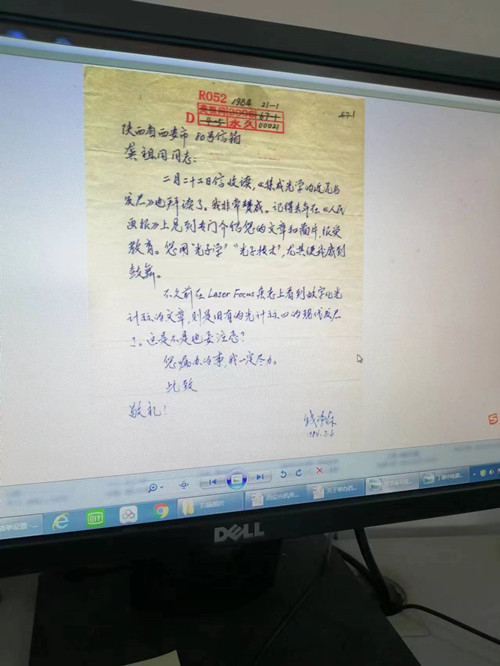 R052 1984 21-1
D 永久 00021
67-1
陕西省西安市 80号信箱
龚祖同同志:
二月二十二日信收读,《集成光学的近况与
发展》也拜读了。我非常赞成。记得去年在《人民
画报》上见到专门介绍您的文章和图片,很受
教育。您用“光子学”“光子技术”,尤其使我感到
鼓舞。
不久前在Laser Focus杂志上看到数字化光
计算的文章,则是旧有的光计算的现代发展
了。这是不是也要注意?
您嘱办的事,我一定尽力。
此致
敬礼!
钱学森
DELL